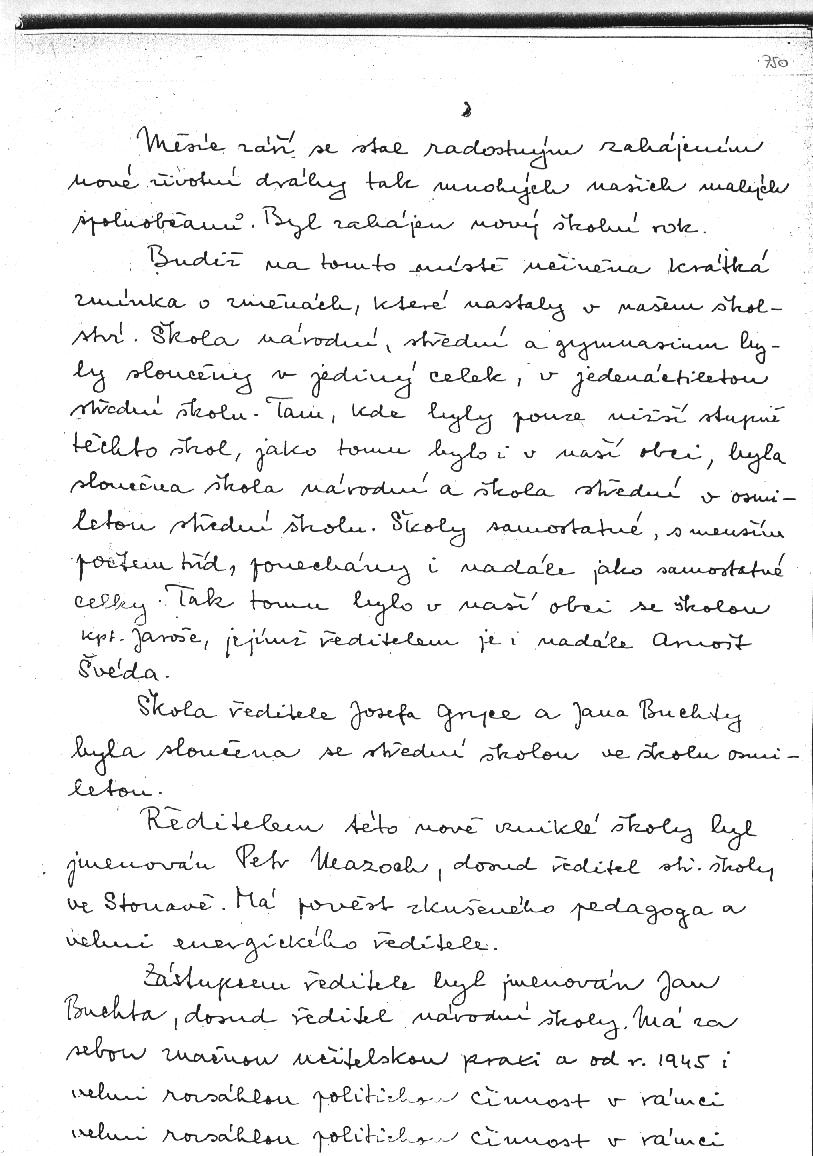 750
Měsíc září se stal radostným zahájením
nové životní dráhy tak mnohých našich malých
spoluobčanů. Byl zahájen nový školní rok.
Budiž na tomto místě učiněna krátká
zmínka o změnách, které nastaly v našem škol-
ství. Škola národní, střední a gymnasium by-
ly sloučeny v jediný celek, v jedenáctiletou
střední školu. Tam, kde byly pouze nižší stupně
těchto škol, jako tomu bylo i v naší obci, byla
sloučena škola národní a škola střední v osmi-
letou střední školu. Školy samostatné, s menším
počtem tříd, ponechány i nadále jako samostatné
celky. Tak tomu bylo v naší obci se školou
kpt. Jaroše, jejímž ředitelem je i nadále Arnošt
Švéda.
Škola ředitele Josefa Gryce a Jana Buchty
byla sloučena se střední školou ve školu osmi-
letou.
Ředitelem této nově vzniklé školy byl
jmenován Petr Mazoch, dosud ředitel stř. školy
ve Stonavě. Má pověst zkušeného pedagoga a
velmi energického ředitele.
Zástupcem ředitele byl jmenován Jan
Buchta, dosud ředitel národní školy. Má za
sebou značnou učitelskou praxi a od r. 1945 i
velmi rozsáhlou politickou činnost v rámci
velmi rozsáhlou politickou činnost v rámci